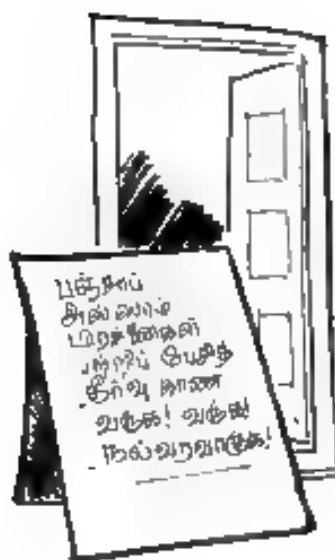 பஞ்சாப்
அஸ்ஸாம்
பிரச்னைகள்
பற்றிப் பேசித்
தீர்வு காண
வருக! வருக!
நல்வரவாகுக!